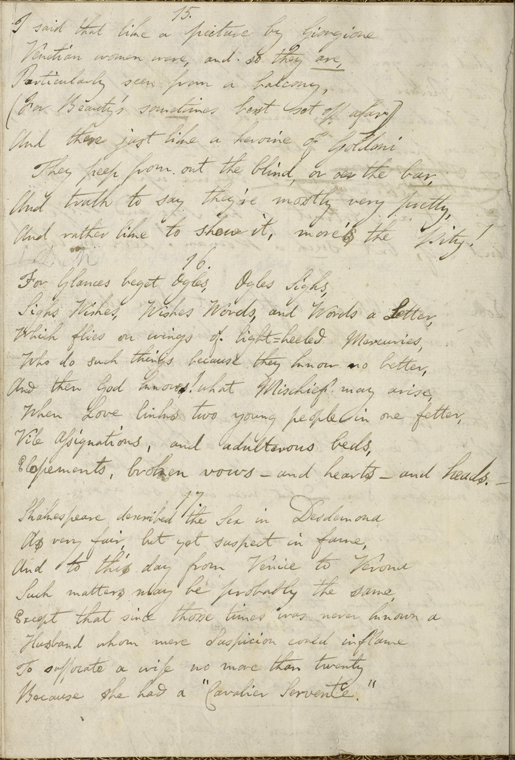 15.
I said that like a picture by Giorgione
Venetian women were, and so they are,
Particularly seen from a balcony,
(For Beauty's sometimes best set off afar)
And there just like a heroine of Goldoni
They peep from out the blind, or o'er the bar,
And truth to say they're mostly very pretty,
And rather like to show it, more's the pity!
16.
For Glances beget Ogles, Ogles Sighs,
Sighs Wishes, Wishes Words, and Words a Letter,
Which flies on wings of light=heeled Mercuries,
Who do such things because they know no better,
And then God knows! what Mischief may arise,
When Love links two young people in one fetter,
Vile Assignations, and adulterous beds,
Elopements, broken vows – and hearts – and heads. –
17.
Shakespeare described the Sex in Desdemona
As very fair but yet suspect in fame,
And to this day from Venice to Verona
Such matters may be probably the same,
Except that since those times was never known a
Husband whom mere suspicion could inflame
To suffocate a wife no more than twenty
Because she had a "Cavalier Servente."